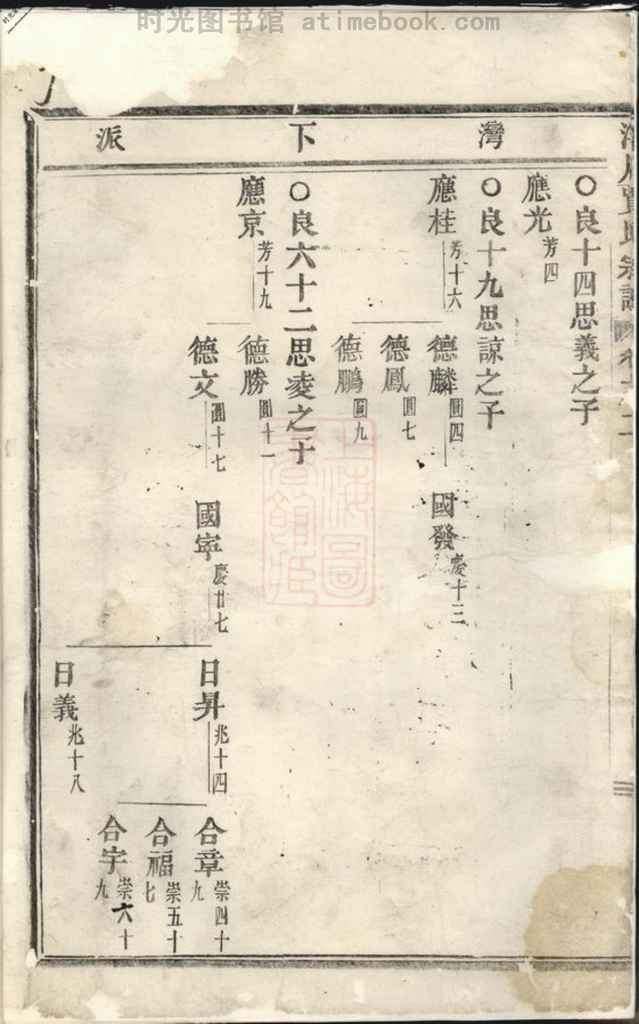 时光图书馆 atimebook.com
賈氏宗譜
灣下派
〇良十四思義之子
應光 芳四
〇良十九思諒之子
應桂 芳十六
德麟 圓四
國發 慶十三
德鳳 圓七
德鵬 圓九
〇良六十二思凌之子
應京 芳十九
德勝 圓十一
德文 圓十七
國寧 慶廿七
日昇 兆十四
合章 崇四十九
合福 崇五十七
合宇 崇六十九
日義 兆十八
上海圖